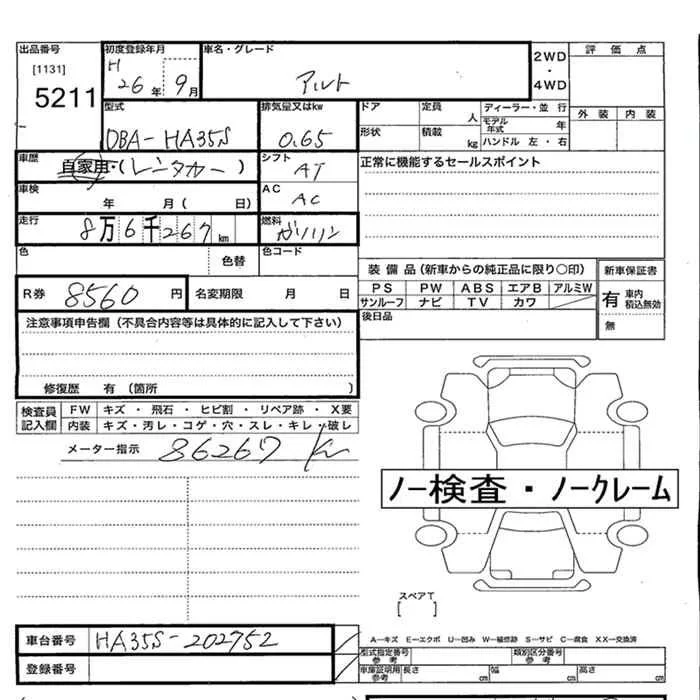 出品番号 初度登録年月 車名・グレード 2WD 評価点
[1131] H
5211 26年 9月 アルト ・ 4WD
型式 排気量又はkw ドア 定員 人 ディーラー・並行 外装 内装
DBA-HA35S 0.65 モデル年式 年
形状 積載 kg ハンドル 左・右
車歴 自家用・(レンタカー) シフト AT 正常に機能するセールスポイント
車検 年 月( 日) AC AC
走行 8万6千267km 燃料 ガソリン
色 色替 色コード
装備品(新車からの純正品に限り〇印) 新車保証書
R券 8560円 名変期限 月 日 PS PW ABS エアB アルミW 有 車内積込無効
サンルーフ ナビ TV カワ
注意事項申告欄(不具合内容等は具体的に記入して下さい) 後日品 無
修復歴 有(箇所 )
検査員記入欄 FW キズ・飛石・ヒビ割・リペア跡・X要
内装 キズ・汚レ・コゲ・穴・スレ・キレ・破レ
メーター指示 86267 Km
ノー検査・ノークレーム
スペアT
[ ]
車台番号 HA35S-202752 A―キズ E―エクボ U―凹み W―補修跡 S―サビ C―腐食 XX―交換済
型式指定番号 参考 類別区分番号 参考
登録番号 車庫証明用 参考 長さ cm 幅 cm 高さ cm